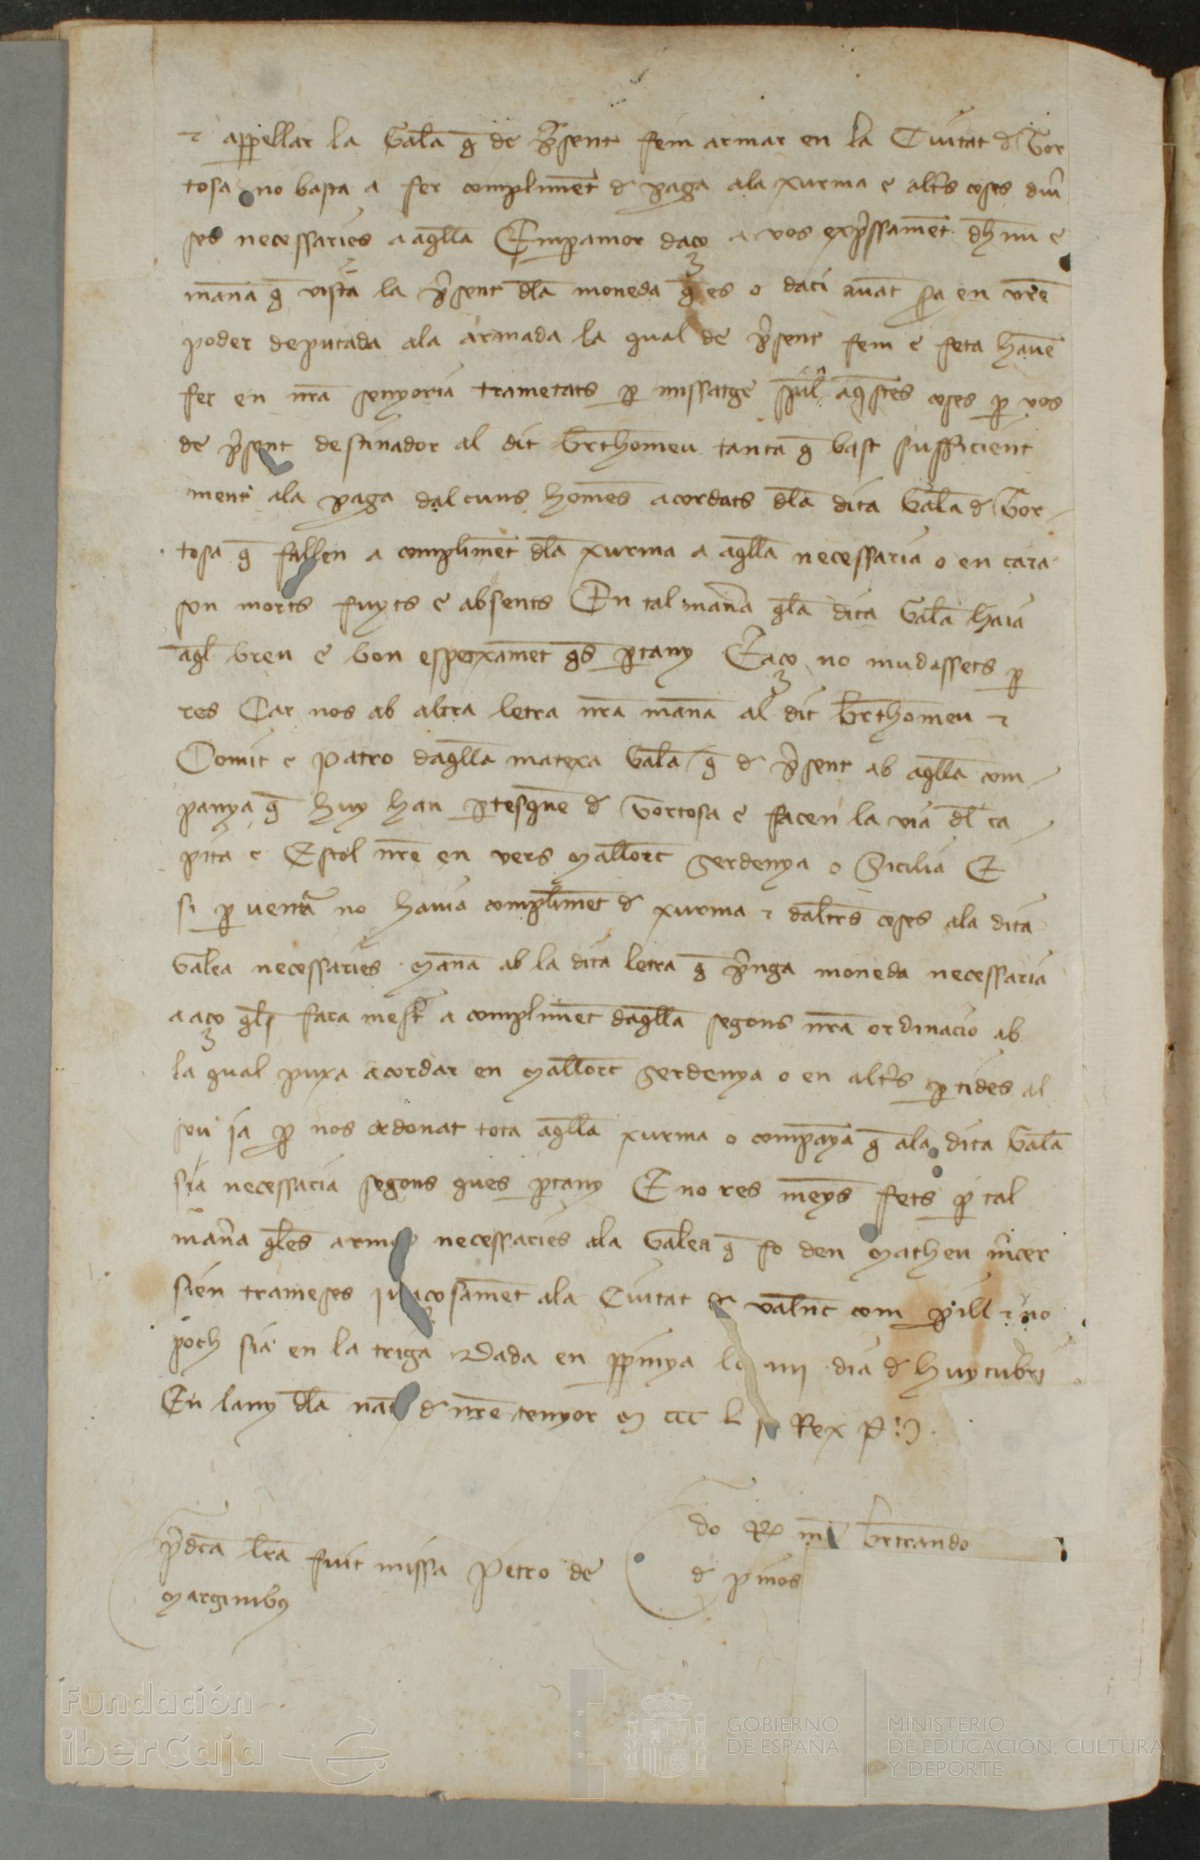 ⁊ appellar la Galea q̃ de p̃sent fem armar en la Ciutat d Tor
tosa no basta a fer compliment d paga ala xurma e alts coses diu
ses necessaries a aq̃lla Emperamor daço a vos exp̃ssament dehim e
manã q̃ vista la p̃sent dla moneda q̃ es o daci auãt sia en vr̃e
poder deputada ala armada la qual de p̃sent fem e feta hauẽ
fer en nr̃a senyoria trametats p missatge sp̃ial aq̃stes coses p vos
de p̃sent destinador al dit Brthomeu tanta q̃ bast sufficient
ment ala paga dalcuns homẽs acordats dla dita Galea d Tor
tosa q̃ fallen a complimẽt dla xurma a aq̃lla necessaria o en cara
son morts fuyts e absents En tal manã q̃la dita Galea haia
aq̃l breu e bon espetxamẽt q̃s ptany E aço no mudassets p
res Car nos ab altra letra nr̃a manã al dit Brthomeu ⁊
Comit e Patro daq̃lla matexa Galea q̃ d p̃sent ab aq̃lla com
panya q̃ huy han ptesquẽ d Tortosa e facen la via dl ca
pita e Estol nr̃e en vers Mallorc̃ Serdenya o Sicilia E
si p uentã no hauia complimẽt d xurma ⁊ daltrs coses ala dita
Galea necessaries manã ab la dita letra q̃ p̃nga moneda necessaria
a aço q̃ls fara mest a complimẽt daq̃lla segons nr̃a ordinacio ab
la qual puxa acordar en Mallorc̃ Serdenya o en alts ptides al
sou ia p nos ordonat tota aq̃lla xurma o companya q̃ ala dita Galea
sia necessaria segons ques ptany E no res meys fets p tal
manã q̃les armes necessaries ala Galea q̃ fo den Matheu m̃cer
sien trameses iuaçosament ala Ciutat d valñc com pill ⁊ no
poch sia en la triga Dada en ppinya lo iiii dia d huytubri
En lany dla nat d nr̃e senyor M CCC L Rex P
Dõ R m brtrando
d pinos
p̃dcã lr̃a fuit missa Petro de
Marginibꝯ
Fundación
iberCaja
GOBIERNO
DE ESPAÑA
MINISTERIO
DE EDUCACIÓN, CULTURA
Y DEPORTE